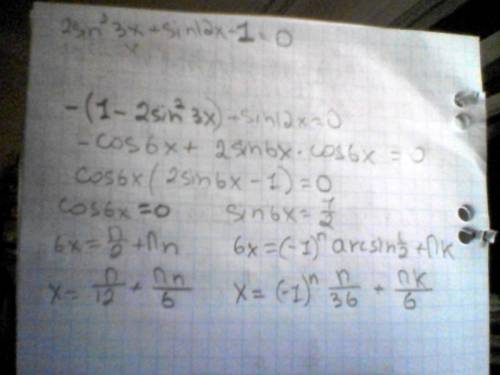 2sin² 3x + sin12x - 1 = 0
-(1 - 2sin² 3x) + sin12x = 0
-cos6x + 2sin6x · cos6x = 0
cos6x(2sin6x - 1) = 0
cos6x = 0 sin6x = 1/2
6x = π/2 + πn 6x = (-1)ⁿ arcsin 1/2 + πk
x = π/12 + πn/6 x = (-1)ⁿ π/36 + πk/6